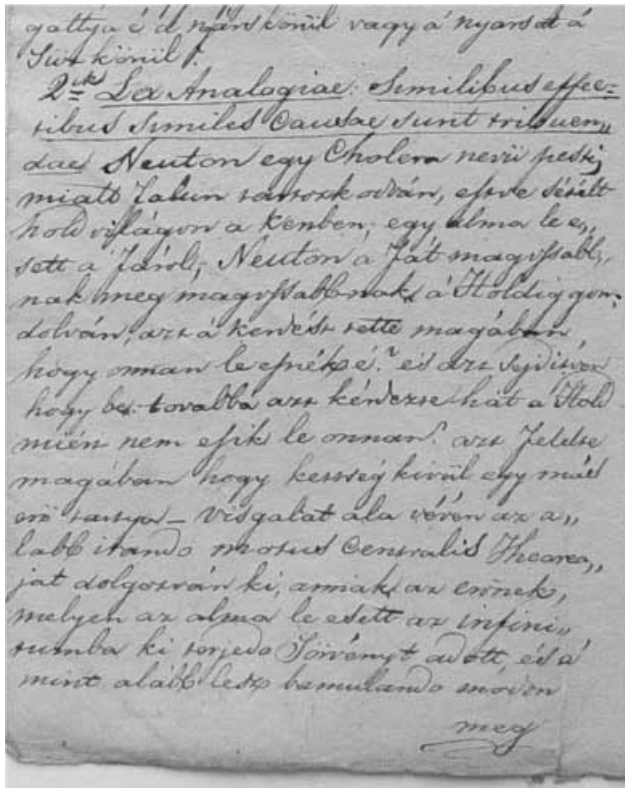 gattya é d nyárs körül vagy a' nyarsat á
Tüz körül /.
2ik Lex Analogiae: Similibus effec=
tibus Similes Causae sunt tribuen„
dae Neuton egy Cholera nevü pestis
miatt falun tartozkodván, estve sétált
hold világon a kertben, egy alma le e„
sett a' fárol, Neuton a' fát magossabb„
nak meg magossabbnak, a' Holdig gon„
dolván, azt a' kérdést tette magában
hogy onnan le esnék é? és azt sejditvén
hogy be. tovabbá azt kérdezte hát a' Hold
miért nem esik le onnan? azt felelte
magában hogy kettség kivül egy más
erö tartya – visgalat ala vévén az a„
labb irando motus Centralis Theoreá„
ját dolgozván ki, annak az erönek,
melyen az alma le esett az infini„
tumba ki terjedo Törvényt adott, és a'
mint alább lesz bamulando modon
meg